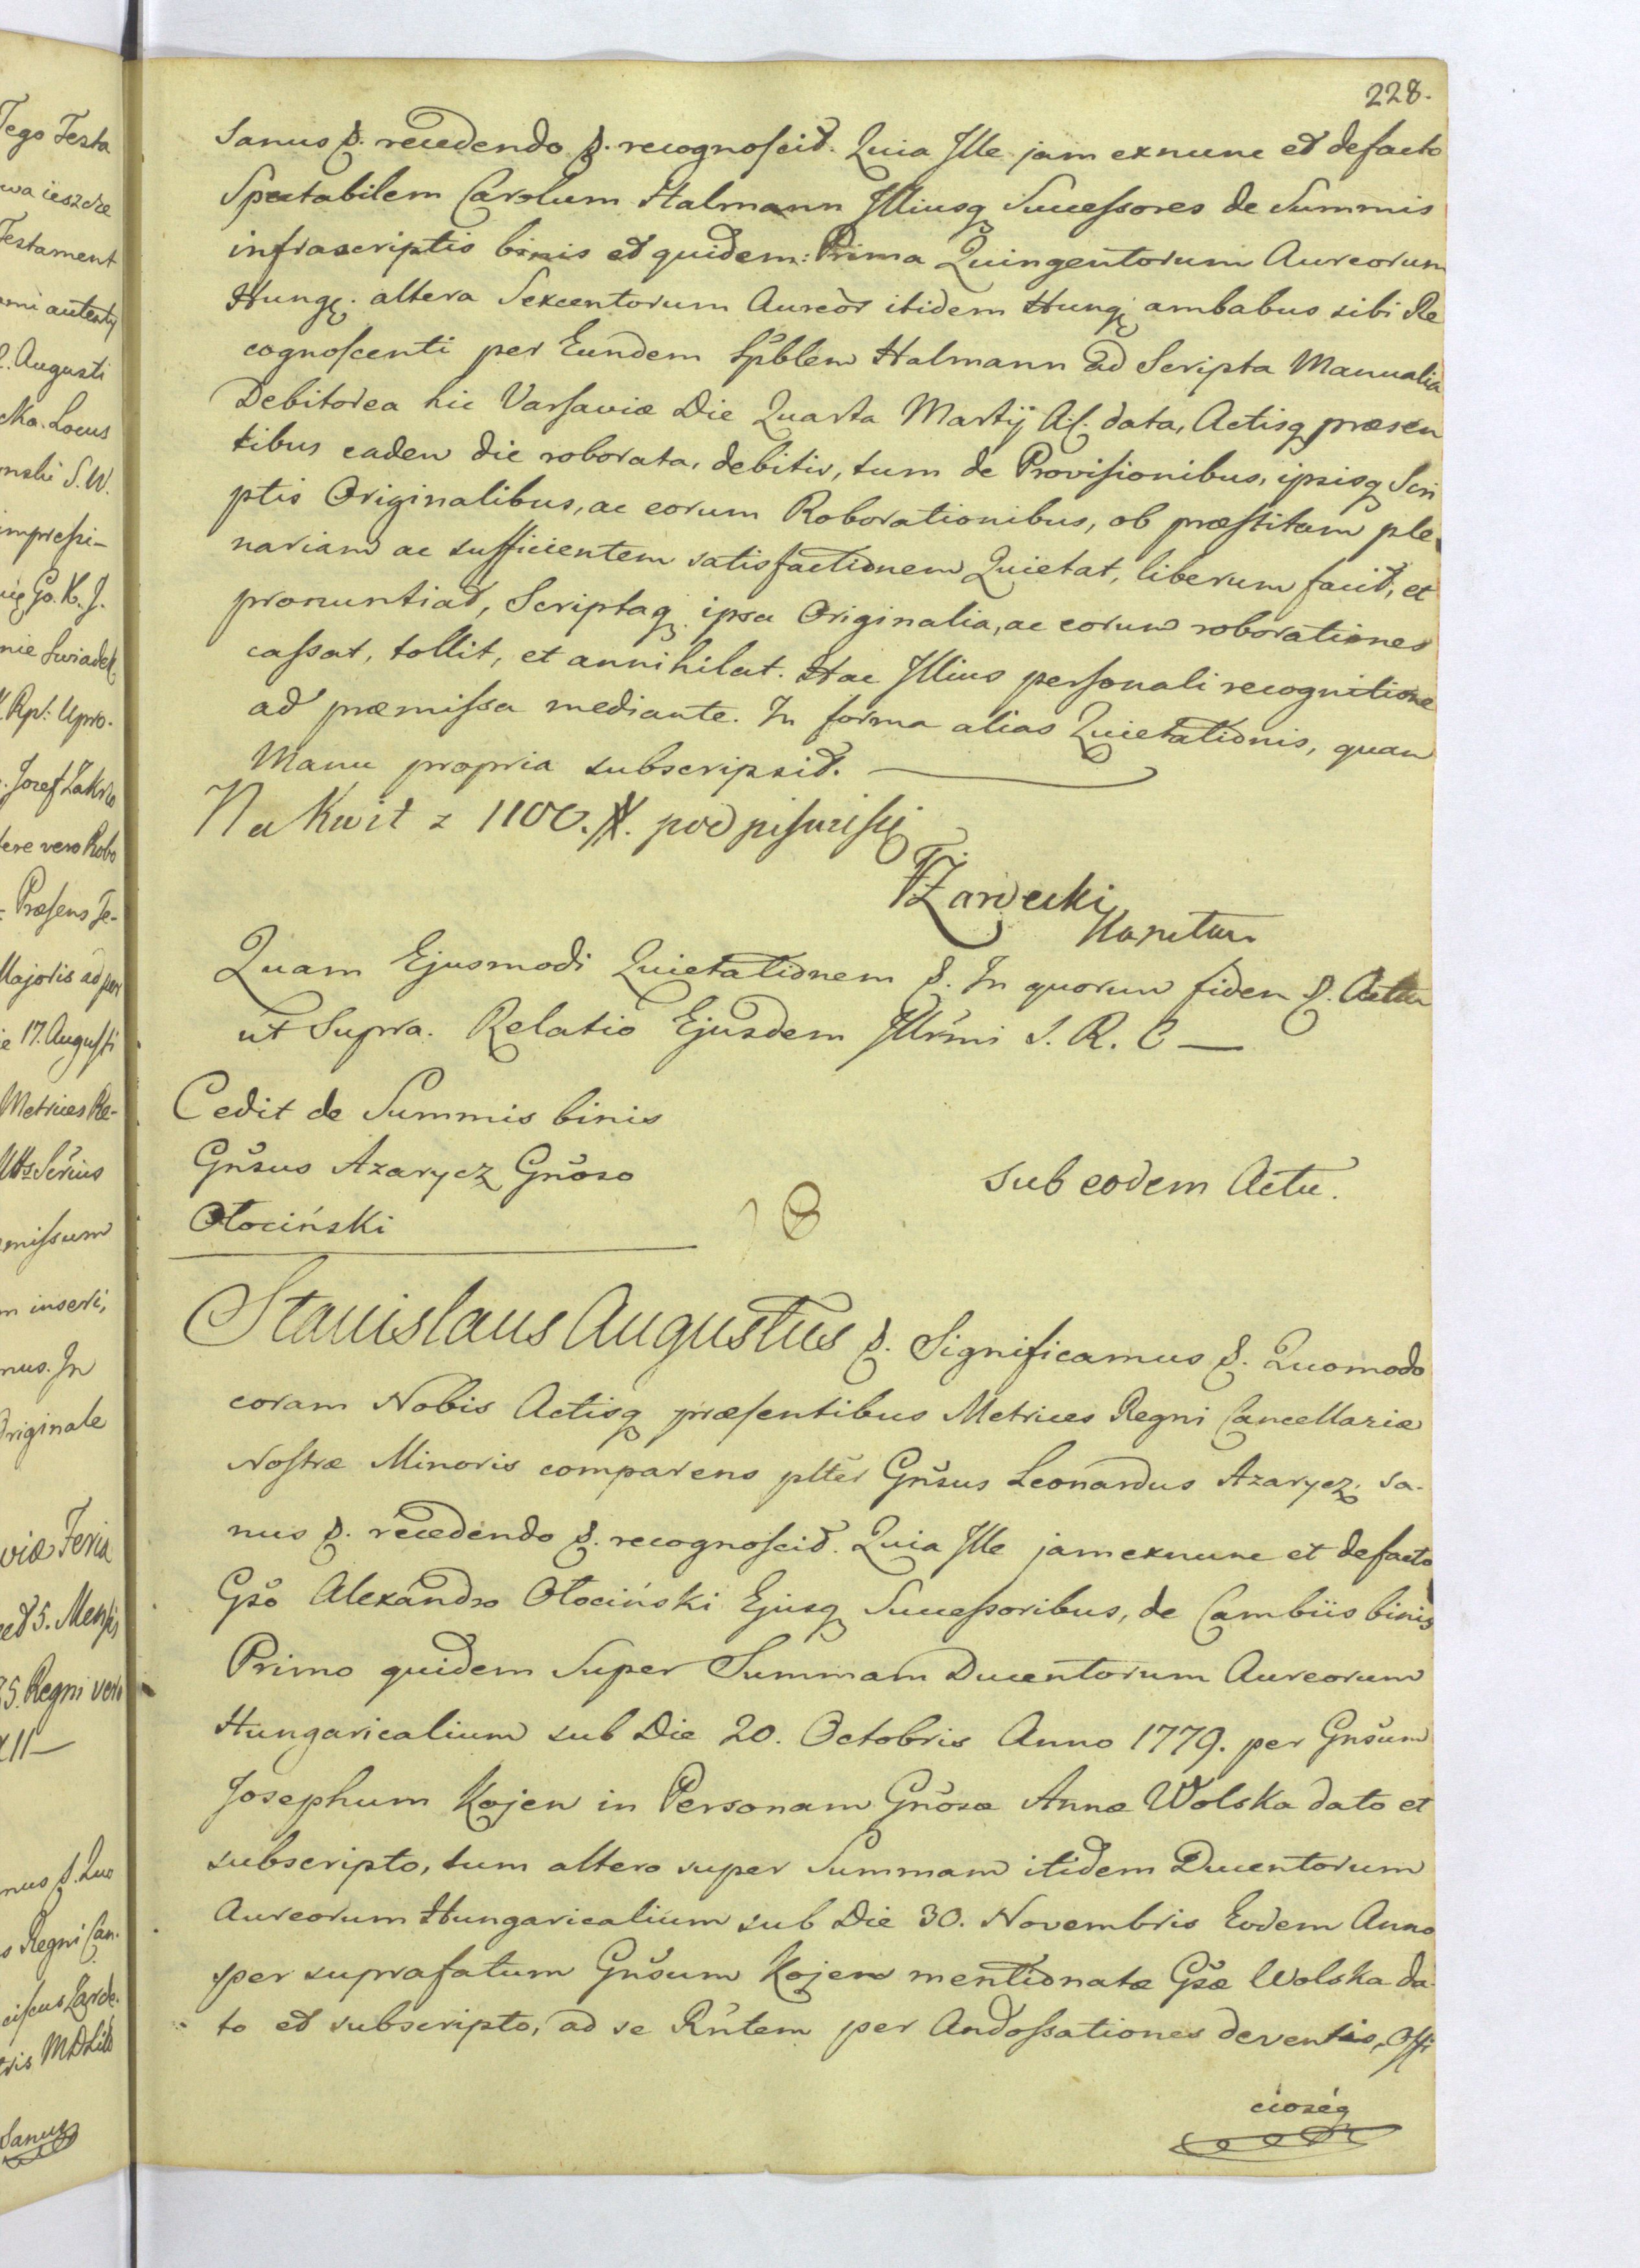 228.
Sanus &. recedendo &. recognoscit. Quia Ille jam exnunc et defacto
Spectabilem Carolum Halmann Illiusq Successores de Summis
infrascriptis binis et quidem: Prima Quingentorum Aureorum
Hungq. altera Sexcentorum Aureor itidem Hungq ambabus sibi Re
cognoscenti per Eundem Spblem Halmann ad Scripta Manualia
Debitorea hic Varsaviæ Die Quarta Martÿ A.C. data, Actisq præsen
tibus eadem die roborata, debitis, tum de Provisionibus, ipsisq Scri
ptis Originalibus, ac eorum Roborationibus, ob præstitam ple
nariam ac sufficientem satisfactionem Quietat, liberum facit, et
pronuntiat, Scriptaq ipsa Originalia, ac eorum roborationes
cassat, tollit, et annihilat. Hac Illius personali recognitione
ad præmissa mediante. In forma alias Quietationis, quam
Manu propria subscripsit.
Na Kwit z 1100. #. podpisuię się
F. Zardecki
Quam Ejusmodi Quietationem &. In quorum fidem &. Actum
ut Supra. Relatio Ejusdem Illrmi S. R. C
Cedit de Summis binis
Gnsus Azarycz Gnoso
Otociński
sub eodem Actu.
Stanislaus Augustus &. Significamus &. Quomodo
coram Nobis Actisq præsentibus Metrices Regni Cancellariæ
Nostræ Minoris comparens plter Gnsus Leonardus Azarycz, sa-
nus &. recedendo &. recognoscit. Quia Ille jam exnunc et defacto
Gso Alexandro Otociński Ejusq Successoribus, de Cambiis binis
Primo quidem Super Summam Ducentorum Aureorum
Hungaricalium sub Die 20. Octobris Anno 1779. per Gnsum
Josephum Kojen in Personam Gnosæ Annæ Wolska dato et
subscripto, tum altero super Summam itidem Ducentorum
Aureorum Hungaricalium sub Die 30. Novembris Eodem Anno
per suprafatum Gnsum Kojen mentionatæ Gsæ Wolska da
to et subscripto, ad se Rntem per Andossationes deventis, Offi
cioseq